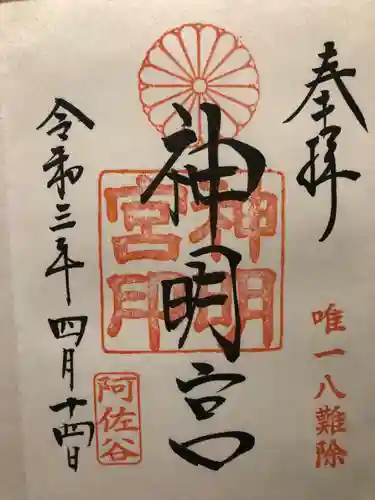 奉拝
唯一八難除
神明宮
神明宮
阿佐谷
令和三年四月十四日